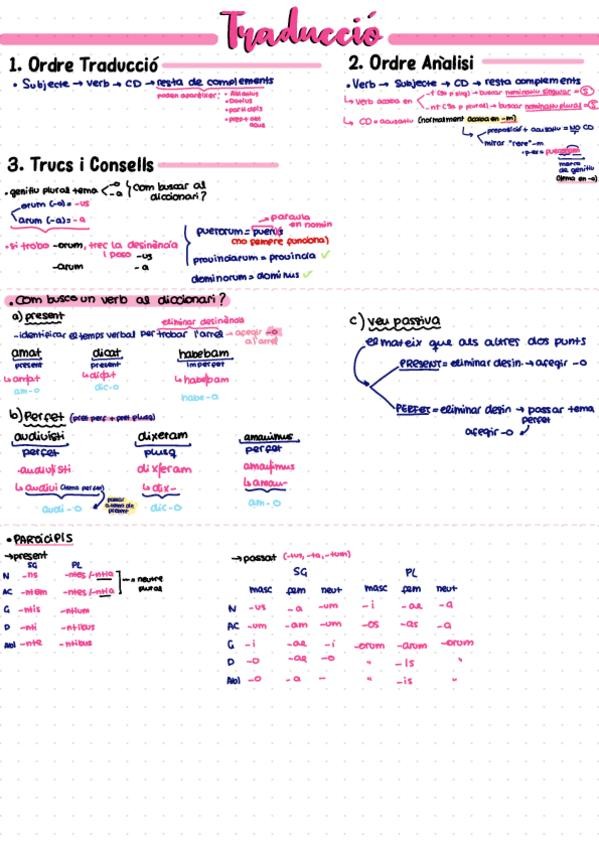 Traducció
1. Ordre Traducció
• Subjecte → verb → CD → resta de complements
poden aparèixer: • Ablatius
• Datius
• participis
• prep + abl
acus
2. Ordre Anàlisi
• Verb → Subjecte → CD → resta complements
↳ Verb acaba en
-t (3a p sing) → buscar nominatiu singular = S
-nt (3a p plural) → buscar nominatiu plural = S
↳ CD = acusatiu (normalment acaba en -m)
↳ preposició + acusatiu = NO CD
mirar "rere" -m
puerorum
marca
de genitiu
(tema en -o)
3. Trucs i Consells
• genitiu plural tema -o -a } com buscar al
diccionari?
orum (-o) = -us
arum (-a) = -a
• si trobo -orum, trec la desinència
i poso -us
-arum -a
→ paraula
en nomin
puerorum = puerus
(no sempre funciona)
provinciarum = provincia ✓
dominorum = dominus ✓
• Com busco un verb al diccionari?
a) present
eliminar desinència
- identificar el temps verbal per trobar l'arrel → afegir -o
a l'arrel
amat dicat habebam
present present imperfet
↳ amat ↳ dicat ↳ habebam
am-o dic-o habe-o
b) Perfet (pret perf + pret plusq)
audivisti dixeram amavimus
perfet plusq perfet
audivisti dixeram amavimus
↳ audivi (tema perfet) ↳ dix- ↳ amav-
passar
a tema de
present
audi-o dic-o am-o
c) veu passiva
el mateix que als altres dos punts
PRESENT = eliminar desin → afegir -o
PERFET = eliminar desin → passar tema
perfet
afegir -o
• PARTICIPIS
→ present
SG PL
N -ns -ntes / -ntia
AC -ntem -ntes / -ntia
→ neutre
plural
G -ntis -ntium
D -nti -ntibus
Abl -nte -ntibus
→ passat (-tus, -ta, -tum)
SG PL
masc fem neut masc fem neut
N -us -a -um -i -ae -a
AC -um -am -um -os -as -a
G -i -ae -i -orum -arum -orum
D -o -ae -o " -is "
Abl -o -a - " -is "